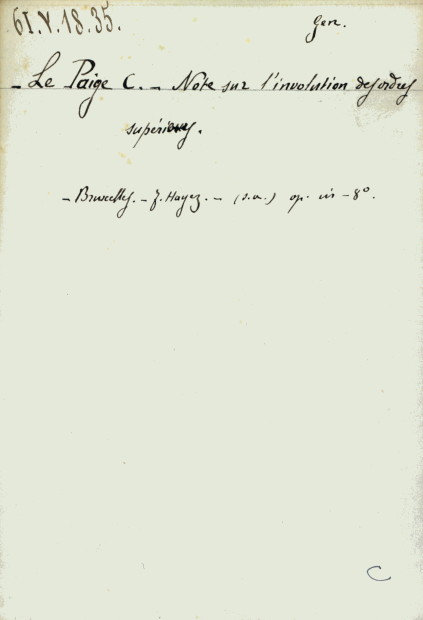 61.V.18.35.
Gen.
- Le Paige C. - Note sur l'involution des ordres
supérieurs.
- Bruxelles. - F. Hayez. - (s.a.) op. in - 8º.
C